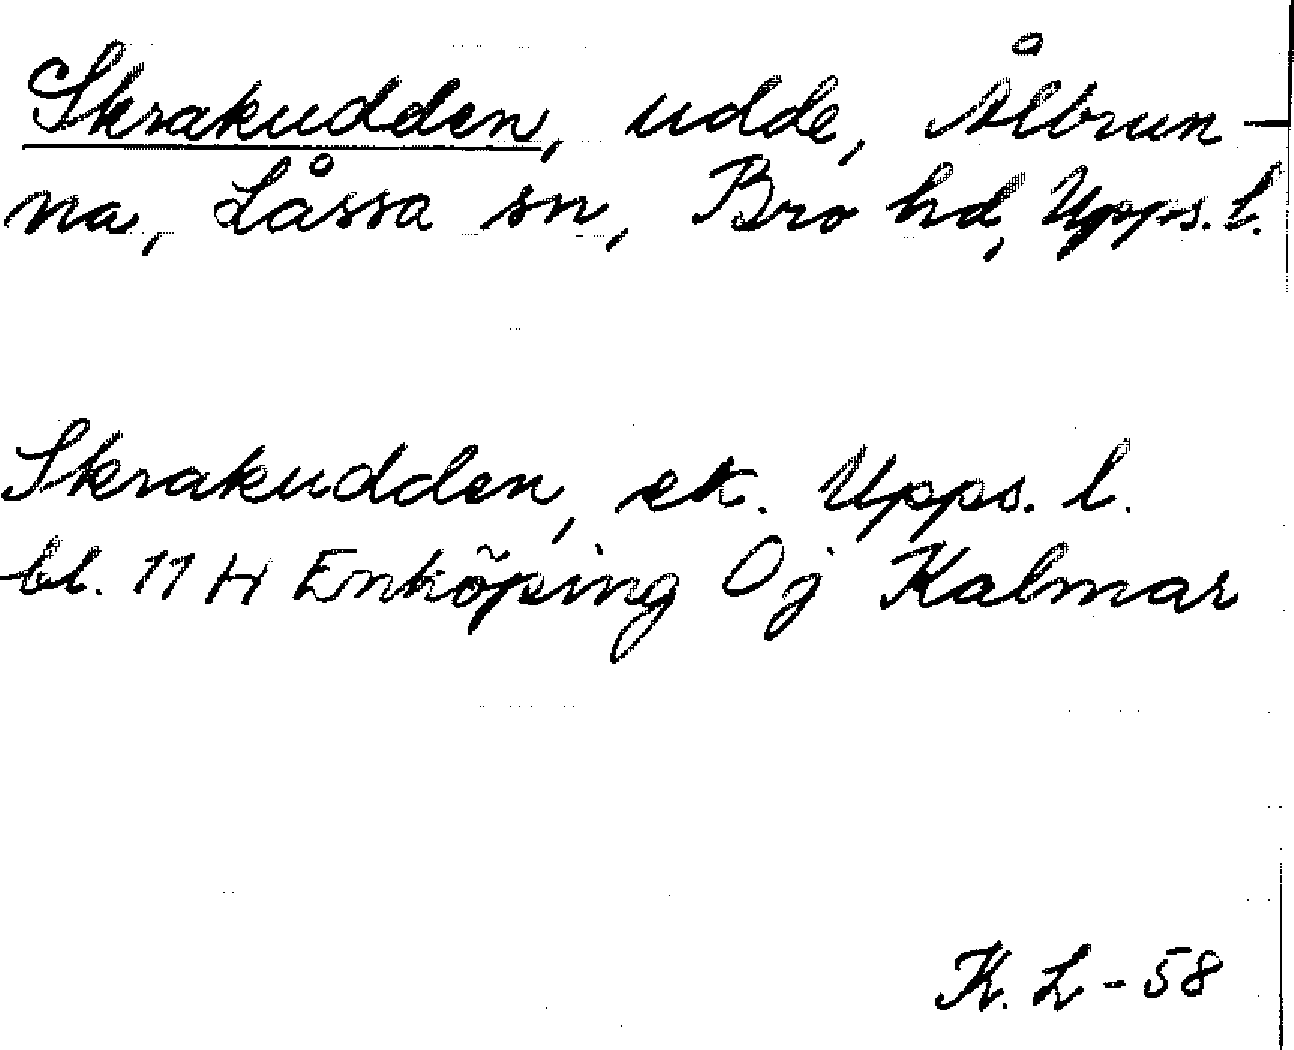 Skrakudden, udde, Ålbrun-
na, Låssa sn, Bro hd, Upps. l.
Skrakudden, ek. Upps. l.
bl. 11 H Enköping Oj Kalmar
K. L - 58